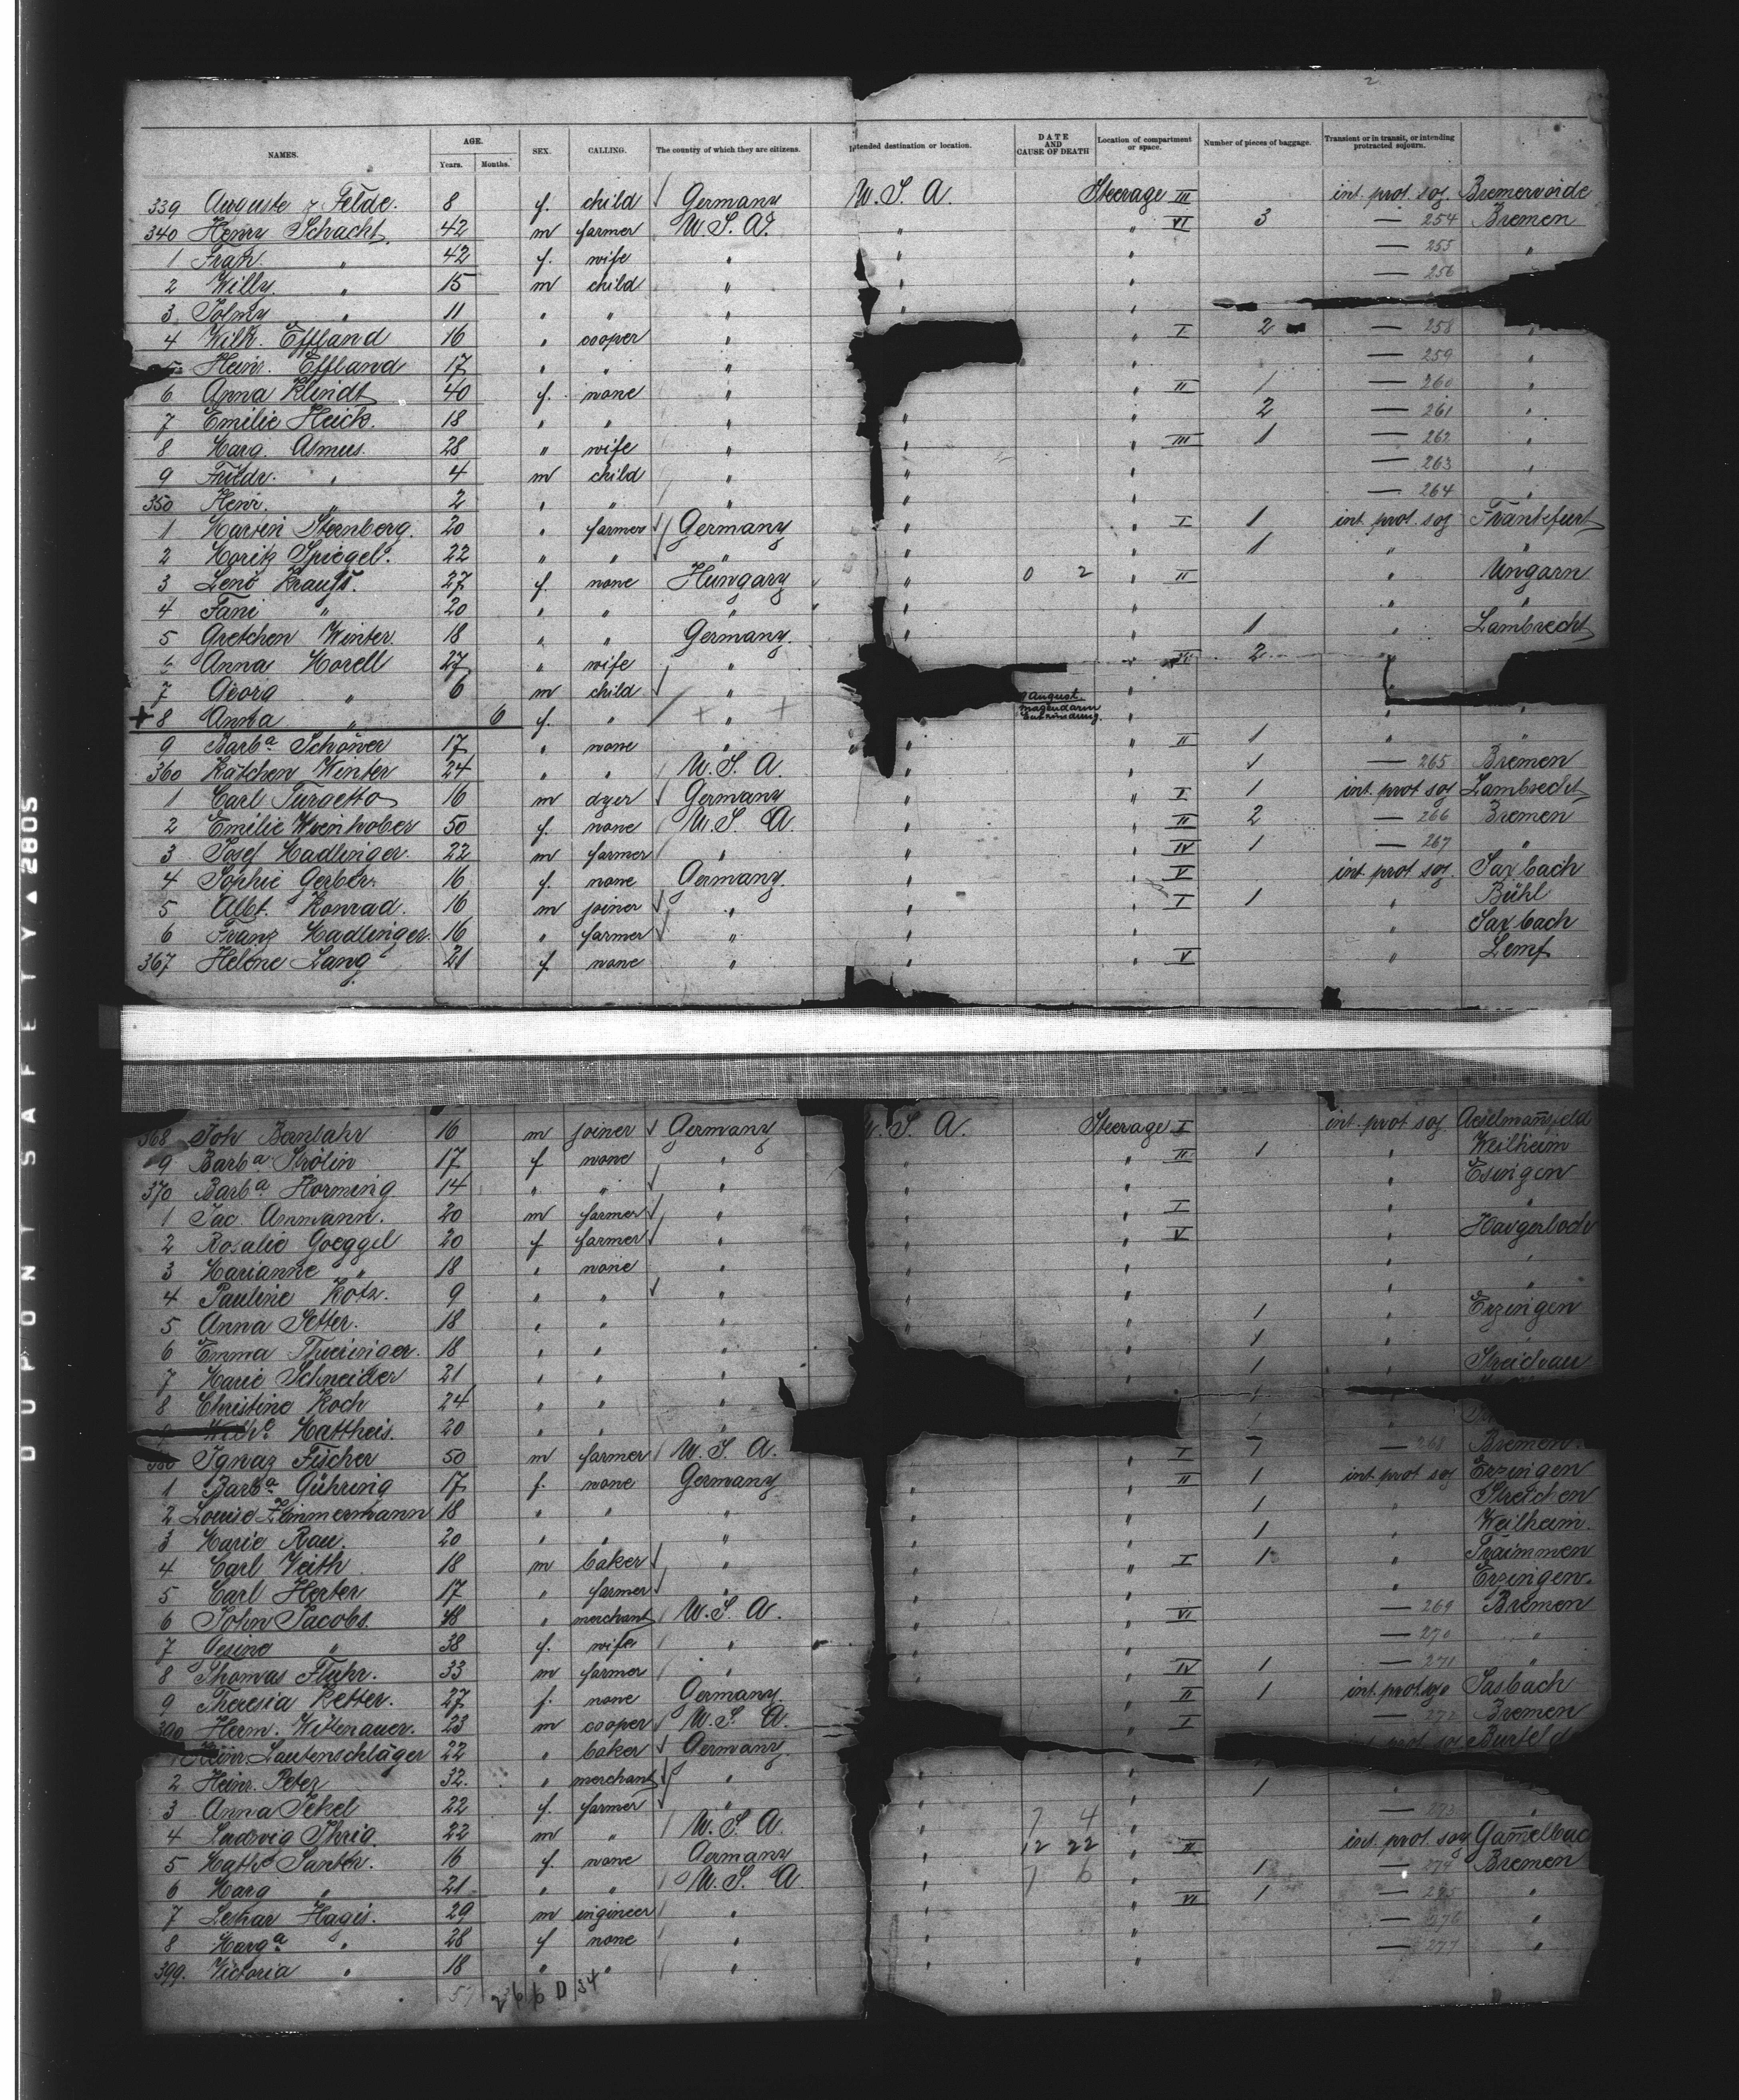 DUPONT SAFETY ▲ 2805
2
NAMES. AGE. Years. Months. SEX. CALLING. The country of which they are citizens. Intended destination or location. DATE AND CAUSE OF DEATH Location of compartment or space. Number of pieces of baggage. Transient or in transit, or intending protracted sojourn.
339 Auguste z Felde. 8 f. child Germany U. S. A. Steerage III int. prot. soj. Bremervörde
340 Henry Schacht 42 m farmer U. S. A. " " VI 3 — 254 Bremen
1 Frau " 42 f. wife " " " — 255 "
2 Willy " 15 m child " " " — 256
3 " 11 " " " " "
4 Wilh. Effland 16 " cooper " " I 2 — 258 "
Heinr. Effland 17 " " " " — 259 "
6 Anna Klindt 40 f. none " " II 1 — 260 "
7 Emilie Heick. 18 " " " " " 2 — 261 "
8 Marg. Asmus. 28 " wife " " " III 1 — 262 "
9 Friedr. " 4 m child " " " — 263 "
350 Heinr. " 2 " " " " " — 264 "
1 Sternberg. 20 " farmer Germany " " I 1 int. prot. soj Frankfurt
2 Moritz Spiegel. 22 " " " " " 1 " "
3 Krauss. 27 f. none Hungary " 0 2 " II " Ungarn
4 Fani " 20 " " " " " " "
5 Gretchen Winter. 18 " " Germany. " " 1 " Lambrecht
6 Anna Morell 27 " wife " " 2 "
7 Georg " 6 m child " "
+ 8 Anna " 6 f. " + " + August Magendarm Entzündung. " " "
9 Barba Schöner 17 " none " " " II 1 " "
360 Kätchen Winter 24 " " U. S. A. " " 1 — 265 Bremen
1 Carl 16 m dyer Germany " " I 1 int. prot soj Lambrecht
2 Emilie 50 f. none U. S. A. " " II 2 — 266 Bremen
3 Josef Madlinger. 22 m farmer " " " IV 1 — 267 "
4 Sophie Gerber. 16 f. none Germany. " " V int. prot soj. Saxbach
5 Albt. Konrad. 16 m joiner " " " I 1 " Bühl
6 Franz Madlinger. 16 " farmer " " " " Saxbach
367 Helene Lang 21 f. none " " " V "
368 Joh 16 m joiner Germany U. S. A. Steerage I int. prot soj
9 Barba Strölin 17 f none " " " II 1 " Weilheim
370 Barba Horming 14 " " " " " " Esingen
1 Jac. Ammann. 20 m farmer " " " I " "
2 Rosalie Goeggel 20 f farmer " " " V " Haigerloch
3 Marianne " 18 " none " " " " "
4 Pauline Kotz. 9 " " " " " " "
5 Anna Setter. 18 " " " " " 1 " Erzingen
6 Emma Thieringer. 18 " " " " 1 " "
7 Marie Schneider 21 " " " " 1 "
8 Christine Koch 24 " " "
Mattheis. 20 " " "
Ignaz Fischer 50 m farmer U. S. A. " I — 268 Bremen.
1 Barba Gühring 17 f. none Germany " " II 1 int prot soj Erzingen
2 Louise Zimmermann 18 " " " " " 1 " Streichen
3 Marie Rau. 20 " " " " " 1 " Weilheim.
4 Carl Veith 18 m baker " " " I 1 "
5 Carl Herter 17 " farmer " " " " Erzingen.
6 John Jacobs. 48 " merchant U. S. A. " " VI — 269 Bremen
7 Gesine " 38 f. wife " " " — 270 "
8 Thomas Fluhr. 33 m farmer " " " IV 1 — 271 "
9 Theresia Retter. 27 f. none Germany. " " II 1 int. prot. sojo Sasbach
390 Herm. Wittenauer. 23 m cooper U. S. A. " I — 272 Bremen
Heinr. Lautenschläger 22 " baker Germany. prot soj
2 Heinr. Peter 32. " merchant " " " 1
3 Anna 22 f. farmer " " " — 273 "
4 Ludwig Ihrig. 22 m " U. S. A. " 7 4 " int. prot. soj
5 16 f. none Germany " 12 22 " II — 274 Bremen
6 Marg " 21 " " U. S. A. " 1 6 " 1 — 275 "
7 Hagis. 29 m engineer " " VI 1 — 276 "
8 Marga " 28 f none " " " — 277 "
399. Victoria " 18 " " " " "
57 266 D 34